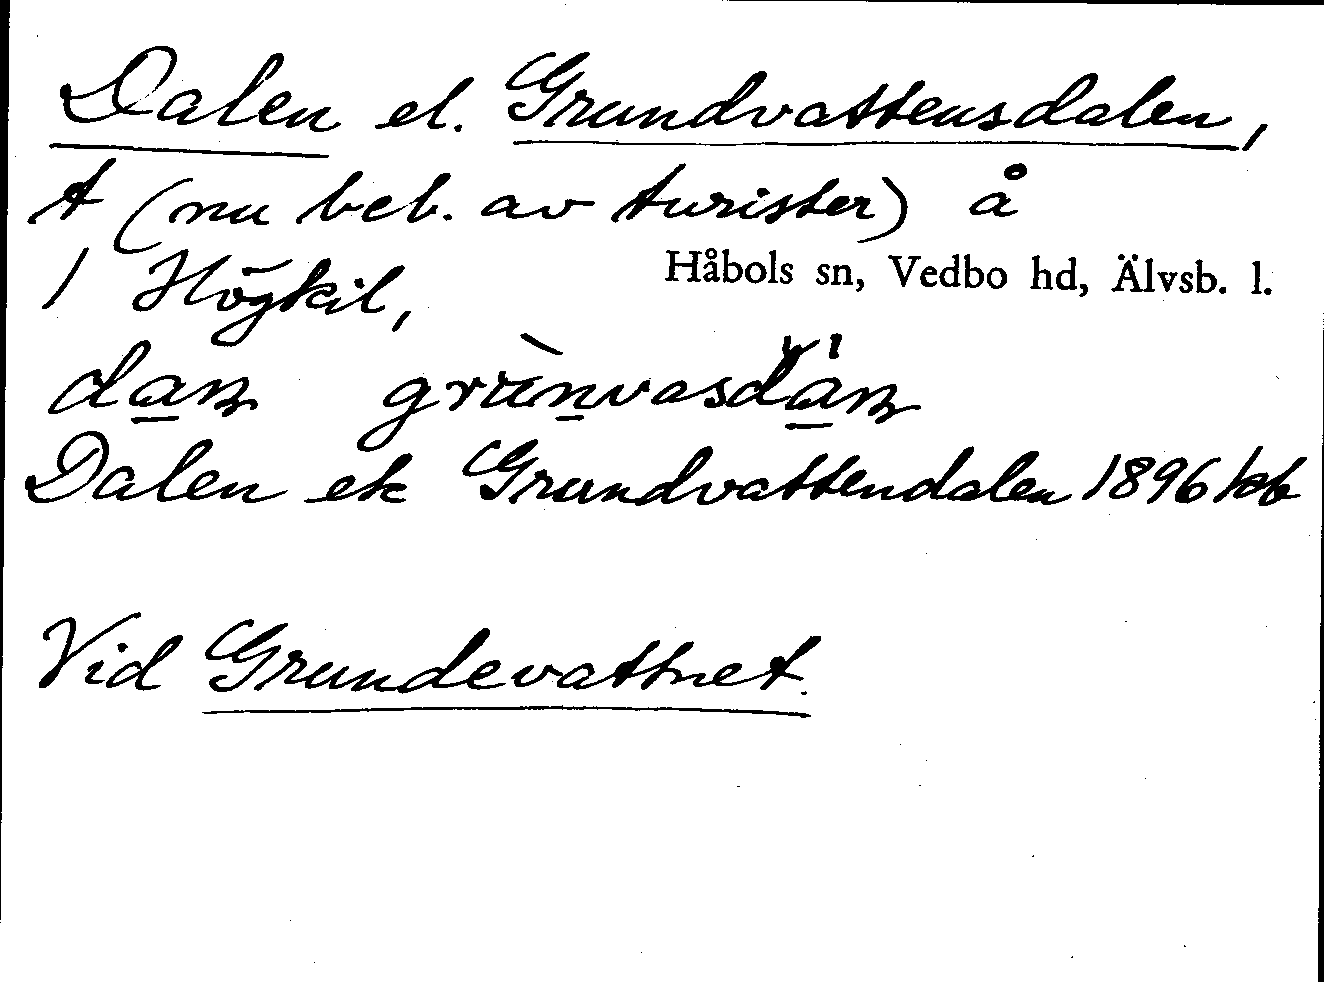 Dalen el. Grundvattensdalen,
t (nu beb. av turister) å
1 Högkil,
Håbols sn, Vedbo hd, Älvsb. l.
Dalen ek Grundvattendalen 1896 kb
Vid Grundevattnet.